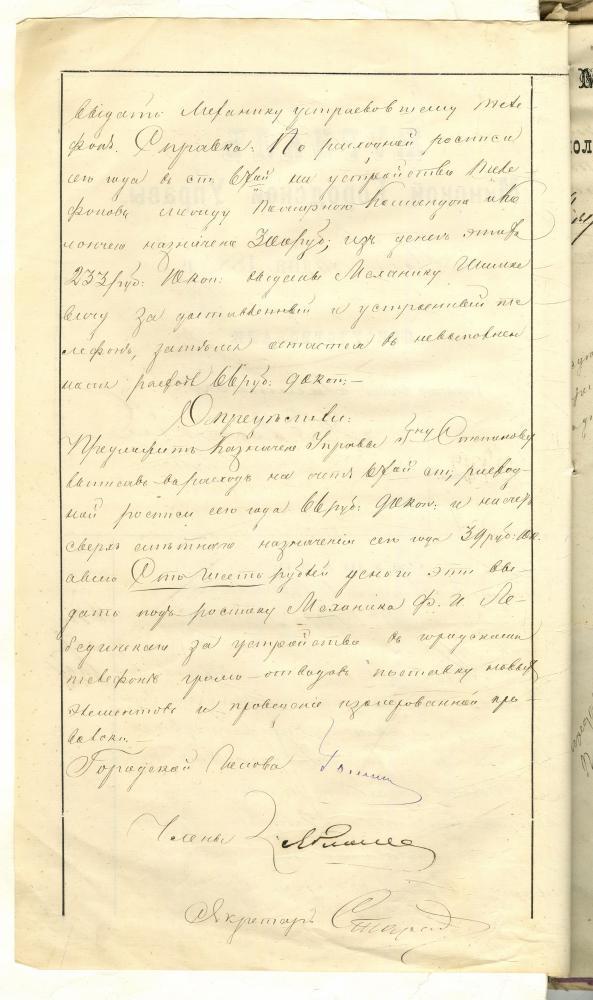 выдать Механику устраевовшему теле-
фонъ. Справка: По расходной росписи
сего года въ ст. 67ой на устройство теле-
фоновъ между Пожарною Командою и Ка
лончею назначено 300 руб; изъ денегъ этихъ
233 руб: 10 коп: выданы Механику Шимке-
вичу за доставленный и устроенный те
лефонъ, затѣмъ остается въ невыполнен-
номъ расходѣ 66 руб: 90 коп:—
Опредѣлили:
Предложить Казначею Управы Гну Степанову
выписавъ въ расходъ на счетъ 67ой ст; расход-
ной росписи сего года 66 руб: 90 коп: и на счетъ
сверхъ смѣтнаго назначенія сего года 39 руб: 10 к.
а всего Сто шесть рублей деньги эти вы-
дать подъ росписку Механика Ф. И. Ле-
бединскаго за устройство въ городскомъ
телефонѣ громо-отводовъ поставку новыхъ
элементовъ и проведеніе изолированной про-
волоки.—
Городской Голова
Члены
Секретарь